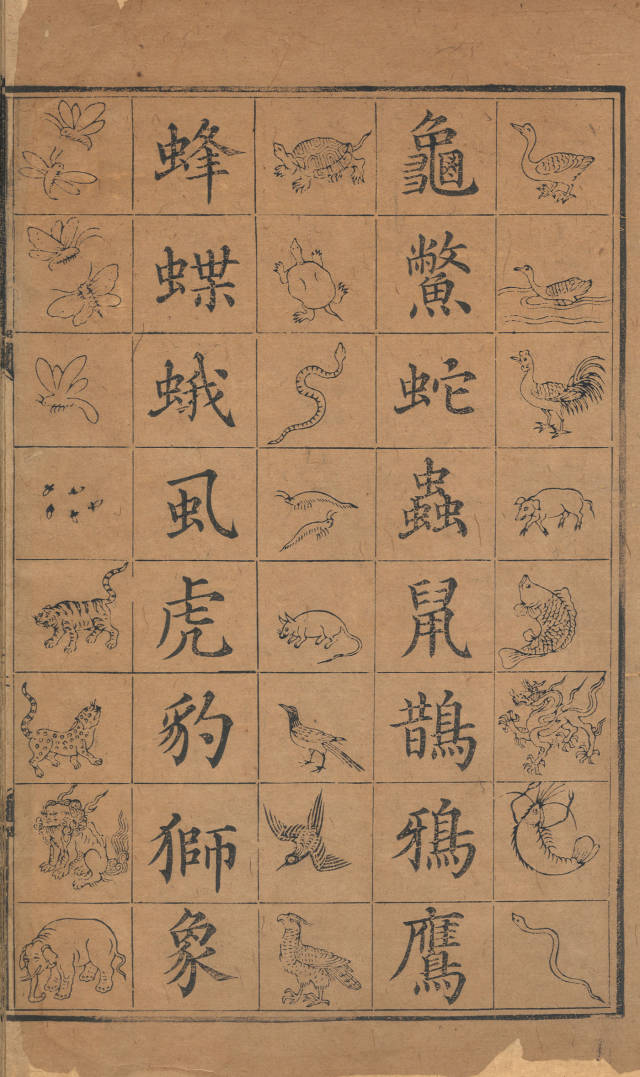 龜鱉蛇蟲鼠鵲鴉鷹
蜂蝶蛾虱虎豹獅象